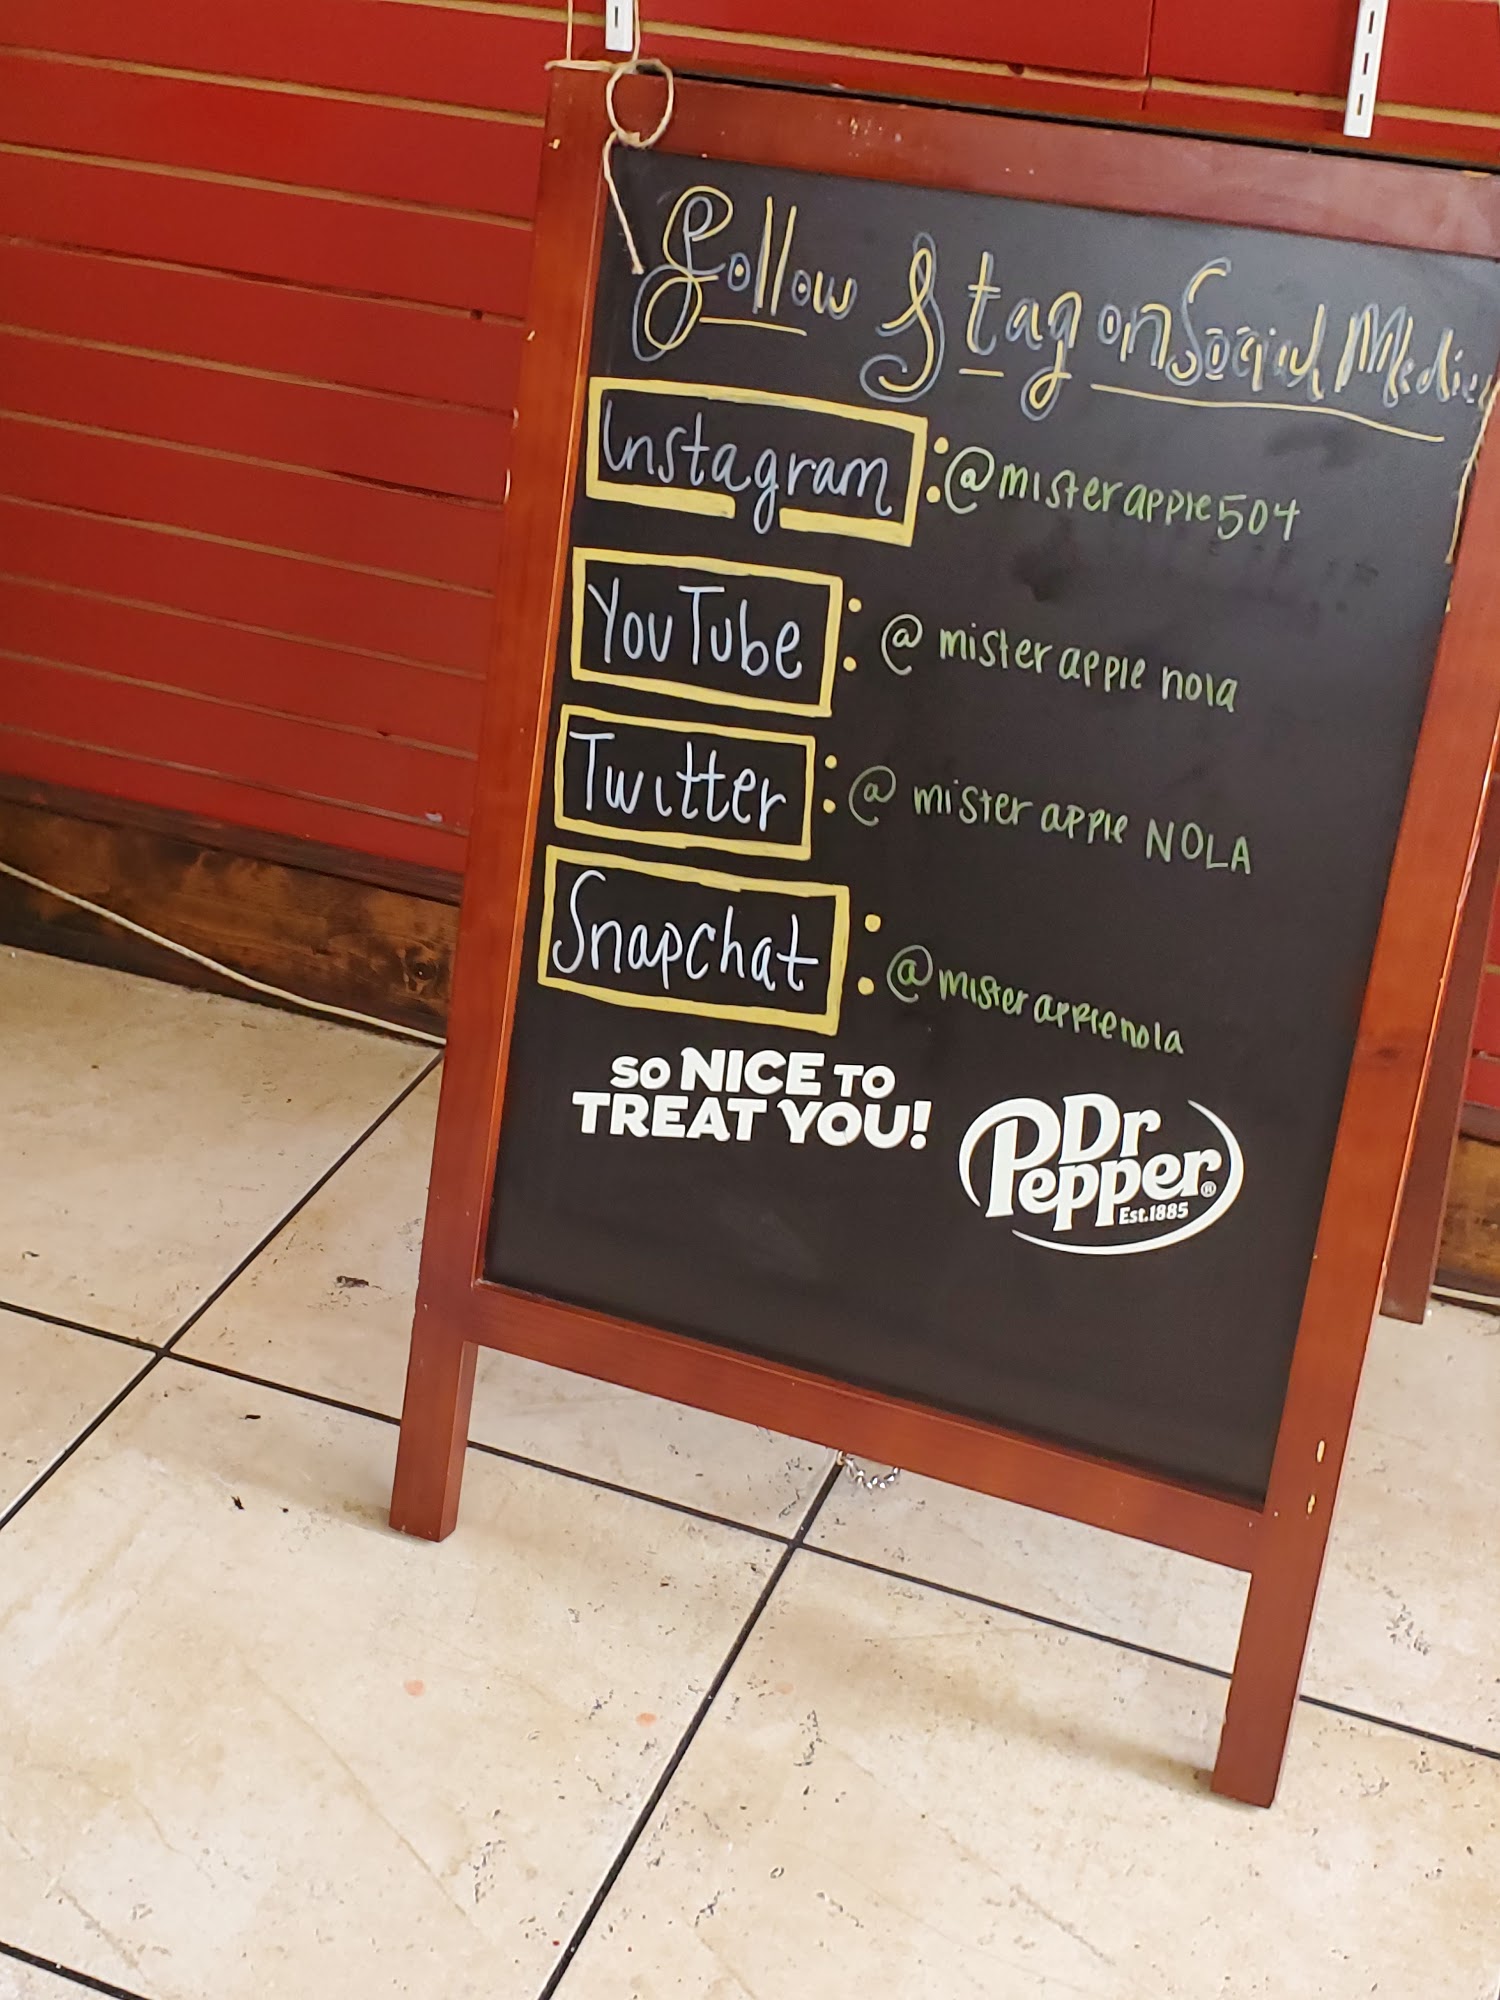 Follow & tag on Social Media
Instagram : @misterapple504
YouTube : @ mister apple nola
Twitter : @ mister apple NOLA
Snapchat : @misterapplenola
SO NICE TO
TREAT YOU!
Dr
Pepper®
Est.1885